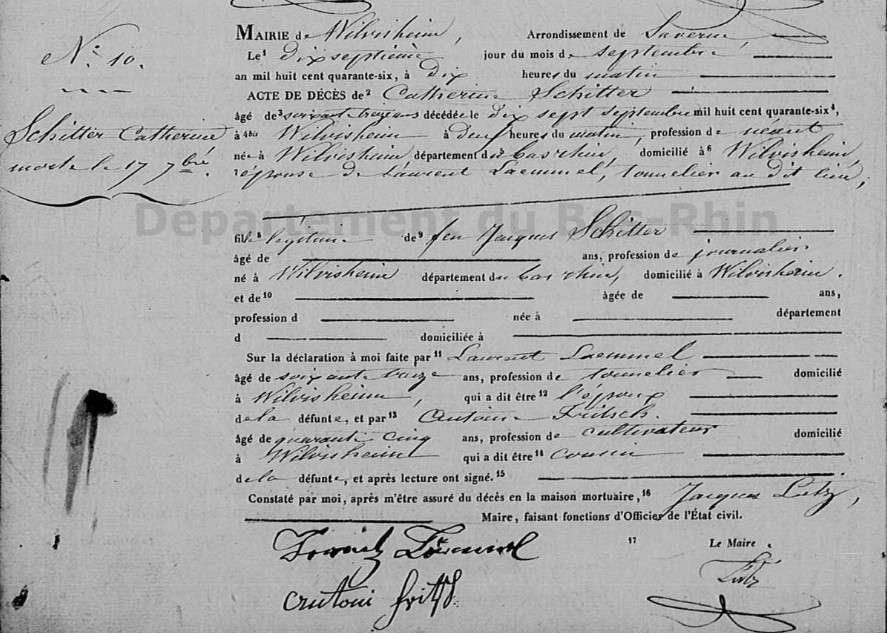 N.º 10.
Schitter Catherine
morte le 17 7bre.
MAIRIE de Wilvisheim, Arrondissement de Saverne
Le¹ dix septième jour du mois de septembre
an mil huit cent quarante-six, à dix heures du matin
ACTE DE DÉCÈS de² Catherine Schitter
âgé de³ décédée le dix sept septembre mil huit cent quarante-six⁴,
à Wilvisheim à deux heures du matin, profession de néant
née à Wilvisheim département du⁵ bas rhin, domicilié à⁶ Wilvisheim,
épouse de Laurent Laemmel, tonnelier au dit lieu,
Département du Bas-Rhin
fille⁸ légitime de⁹ feu Jacques Schitter
âgé de ans, profession de journalier
né à Wilvisheim département du bas rhin, domicilié à Wilvisheim.
et de¹⁰ âgée de ans,
profession d née à département
d domiciliée à
Sur la déclaration à moi faite par¹¹ Laurent Laemmel
âgé de soixante ans, profession de tonnelier domicilié
à Wilvisheim, qui a dit être¹² l'époux
de la défunte, et par¹³ Antoine Fritsch.
âgé de quarante cinq ans, profession de cultivateur domicilié
à Wilvisheim qui a dit être¹⁴ cousin
de la défunte, et après lecture ont signé.¹⁵
Constaté par moi, après m'être assuré du décès en la maison mortuaire,¹⁶ Jacques Lutz,
Maire, faisant fonctions d'Officier de l'État civil.
¹⁷ Le Maire
Lutz